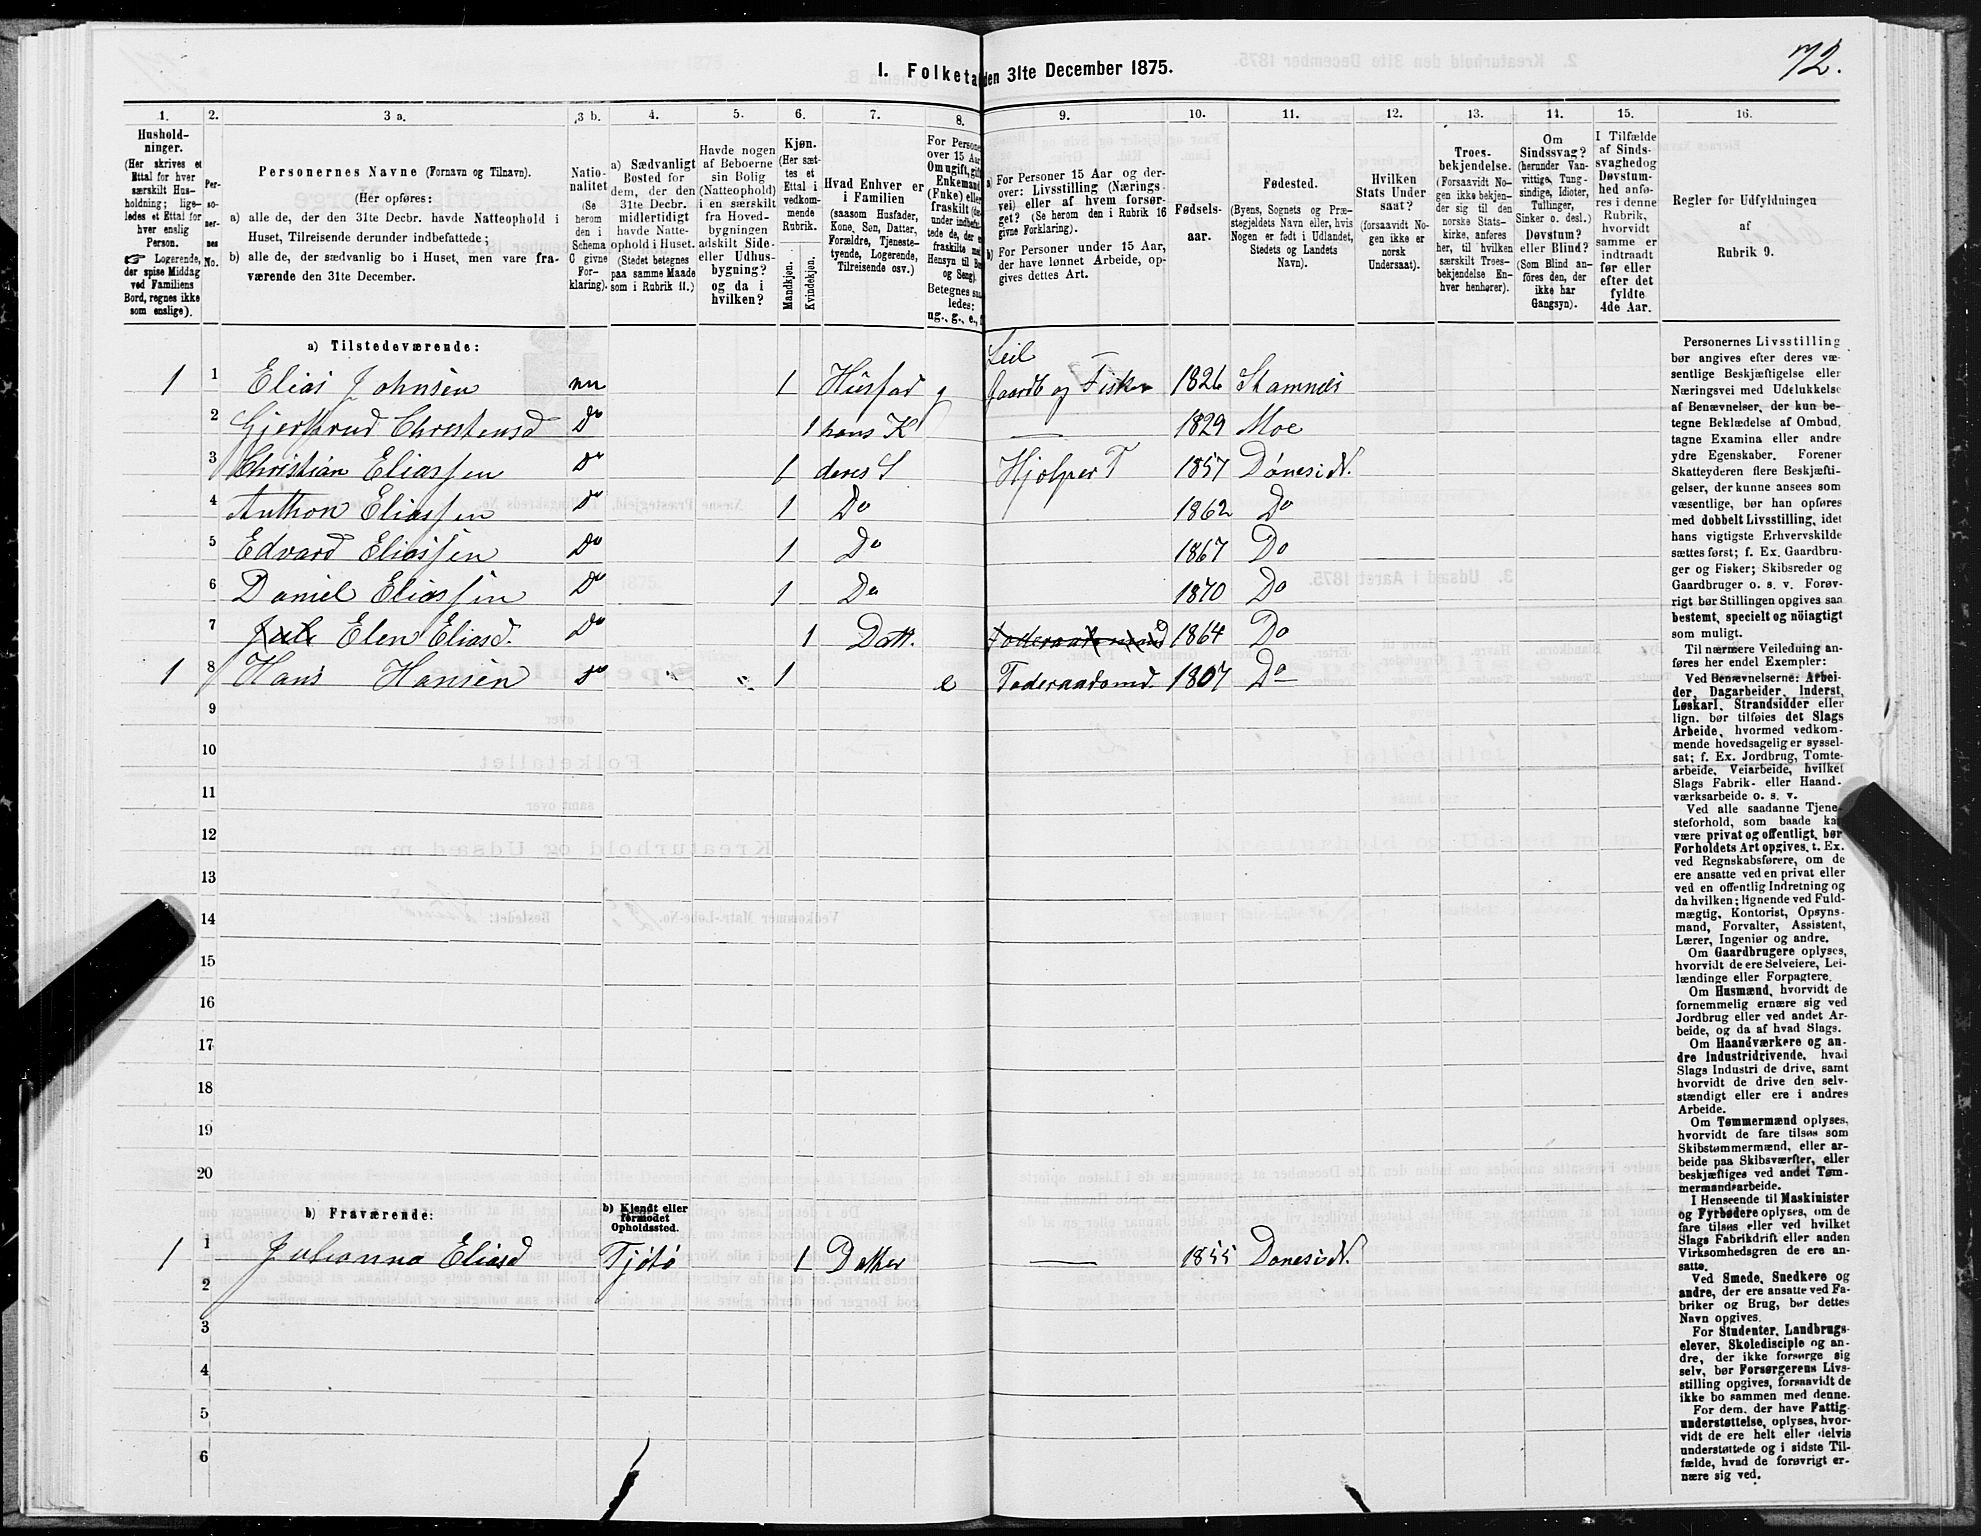 72.
1. Folketa den 31te December 1875.
1. 2. 3 a. 3 b. 4. 5. 6. 7. 8. 9. 10. 11. 12. 13. 14. 15. 16.
Hushold-
ninger.
(Her skrives et
Ettal for hver
særskilt Hus-
holdning; lige-
ledes et Ettal for
hver enslig
Person.
☞ Logerende,
der spise Middag
ved Familiens
Bord, regnes ikke
som enslige).
Per-
so-
ner-
nes
No.
Personernes Navne (Fornavn og Tilnavn).
(Her opføres:
a) alle de, der den 31te Decbr. havde Natteophold i
Huset, Tilreisende derunder indbefattede;
b) alle de, der sædvanlig bo i Huset, men vare fra-
værende den 31te December.
Natio-
nalitet
(Se
herom
den i
Schema
C givne
For-
klaring).
a) Sædvanligt
Bosted for
dem, der den
31te Decbr.
midlertidigt
havde Natte-
ophold i Huset.
(Stedet betegnes
paa samme Maade
som i Rubrik 11.)
Havde nogen
af Beboerne
sin Bolig
(Natteophold)
i en særskilt
fra Hoved-
bygningen
adskilt Side-
eller Udhus-
bygning?
og da i
hvilken?
Kjøn.
(Her sæt-
tes et
Ettal i
vedkom-
mende
Rubrik.
Mandkjøn.
Kvindekjøn.
Hvad Enhver er
i Familien
(saasom Husfader,
Kone, Søn, Datter,
Forældre, Tjeneste-
tyende, Logerende,
Tilreisende osv.)
For Persone
over 15 Aar
Om ugift, gift
Enkemand
(Enke) eller
fraskilt (de-
under indbefat-
tede de, der er
fraskilte med
Hensyn til Bo
og Seng).
Betegnes saa
ledes:
ug., g., e., f
a) For Personer 15 Aar og der-
over: Livsstilling (Nærings-
vei) eller af hvem forsør-
get? (Se herom den i Rubrik 16
givne Forklaring).
b) For Personer under 15 Aar,
der have lønnet Arbeide, op-
gives dettes Art.
Fødsels-
aar.
Fødested.
(Byens, Sognets og Præ-
stegjeldets Navn eller, hvis
Nogen er født i Udlandet,
Stedets og Landets
Navn).
Hvilken
Stats Under
saat?
(forsaavidt No-
gen ikke er
norsk
Undersaat).
Troes-
bekjendelse.
(Forsaavidt No-
gen ikke bekjen-
der sig til den
norske Stats-
kirke, anføres
her, til hvilken
særskilt Troes-
bekjendelse En-
hver henhører).
Om
Sindssvag?
(herunder Van-
vittige, Tung-
sindige, Idioter,
Tullinger,
Sinker o. desl.)
Døvstum?
eller Blind?
(Som Blind an-
føres den, der
ikke har
Gangsyn).
I Tilfælde
af Sinds-
svaghedog
Døvstum-
hed anfø-
res i denne
Rubrik,
hvorvidt
samme er
indtraadt
før eller
efter det
fyldte
4de Aar.
Regler for Udfyldningen
af
Rubrik 9.
a) Tilstedeværende:
Leil
1 1 Elias Johnsen nn 1 Husfad g Gaardb og Fisker 1826 Stamnes
2 Gjertrud Christensd Do 1 hans K — 1829 Moe
3 Christian Eliassen Do 1 deres S Hjølper F 1857 Dønesidt.
4 Anthon Eliassen Do 1 Do 1862 Do
5 Edvard Eliassen Do 1 Do 1867 Do
6 Daniel Eliassen Do 1 Do 1870 Do
7 Elen Eliasd. Do 1 Datt. 1864 Do
1 8 Hans Hansen Do 1 e Foderaadsmd. 1807 Do
9
10
11
12
13
14
15
16
17
18
19
20
b) Fraværende:
b) Kjendt eller
formodet
Opholdssted.
1 1 Julianna Eliasd Tjøtø 1 Datter — 1855 Dønesidt.
2
3
4
5
6
Personernes Livsstilling
bør angives efter deres væ-
sentlige Beskjæftigelse eller
Næringsvei med Udelukkelse
af Benævnelser, der kun be-
tegne Beklædelse af Ombud,
tagne Examina eller andre
ydre Egenskaber. Forener
Skatteyderen flere Beskjæfti-
gelser, der kunne ansees som
væsentlige, bør han opføres
med dobbelt Livsstilling, idet
hans vigtigste Erhvervskilde
sættes først; f. Ex. Gaardbru-
ger og Fisker; Skibsreder og
Gaardbruger o. s. v. Forøv-
rigt bør Stillingen opgives saa
bestemt, specielt og nöiagtigt
som muligt.
Til nærmere Veiledning an-
føres her endel Exempler:
Ved Benævnelserne: Arbei-
der, Dagarbeider, Inderst,
Løskarl, Strandsidder eller
lign. bør tilføies det Slags
Arbeide, hvormed vedkom-
mende hovedsagelig er syssel-
sat; f. Ex. Jordbrug, Tomte-
arbeide, Veiarbeide, hvilket
Slags Fabrik- eller Haand-
værksarbeide o. s. v.
Ved alle saadanne Tjene-
steforhold, som baade kan
være privat og offentligt, bør
Forholdets Art opgives, t. Ex.
ved Regnskabsførere, om de
ere ansatte ved en privat eller
ved en offentlig Indretning og
da hvilken; lignende ved Fuld-
mægtig, Kontorist, Opsyns-
mand, Forvalter, Assistent,
Lærer, Ingeniør og andre.
Om Gaardbrugere oplyses,
hvorvidt de ere Selveiere, Lei-
lændinge eller Forpagtere.
Om Husmænd, hvorvidt de
fornemmelig ernære sig ved
Jordbrug eller ved andet Ar-
beide, og da af hvad Slags.
Om Haandværkere og an-
dre Industridrivende, hvad
Slags Industri de drive, samt
hvorvidt de drive den selv-
stændigt eller ere i andres
Arbeide.
Om Tømmermænd oplyses,
hvorvidt de fare tilsøs som
Skibstømmermænd, eller ar-
beide paa Skibsværfter, eller
beskjæftiges ved andet Tøm-
mermandsarbeide.
I Henseende til Maskinister
og Fyrbødere oplyses, om de
fare tilsøs eller ved hvilket
Slags Fabrikdrift eller anden
Virksomhedsgren de ere an-
satte.
Ved Smede, Snedkere og
andre, der ere ansatte ved Fa-
briker og Brug, bør dettes
Navn opgives.
For Studenter, Landbrugs-
elever, Skoledisciple og an-
dre, der ikke forsørge sig
selv, bør Forsørgerens Livs-
stilling opgives, forsaavidt de
ikke bo sammen med denne.
For dem, der have Fattig-
understøttelse, oplyses, hvor-
vidt de ere helt eller delvis
understøttede og i sidste Til-
fælde, hvad de forøvrigt er-
nære sig ved.